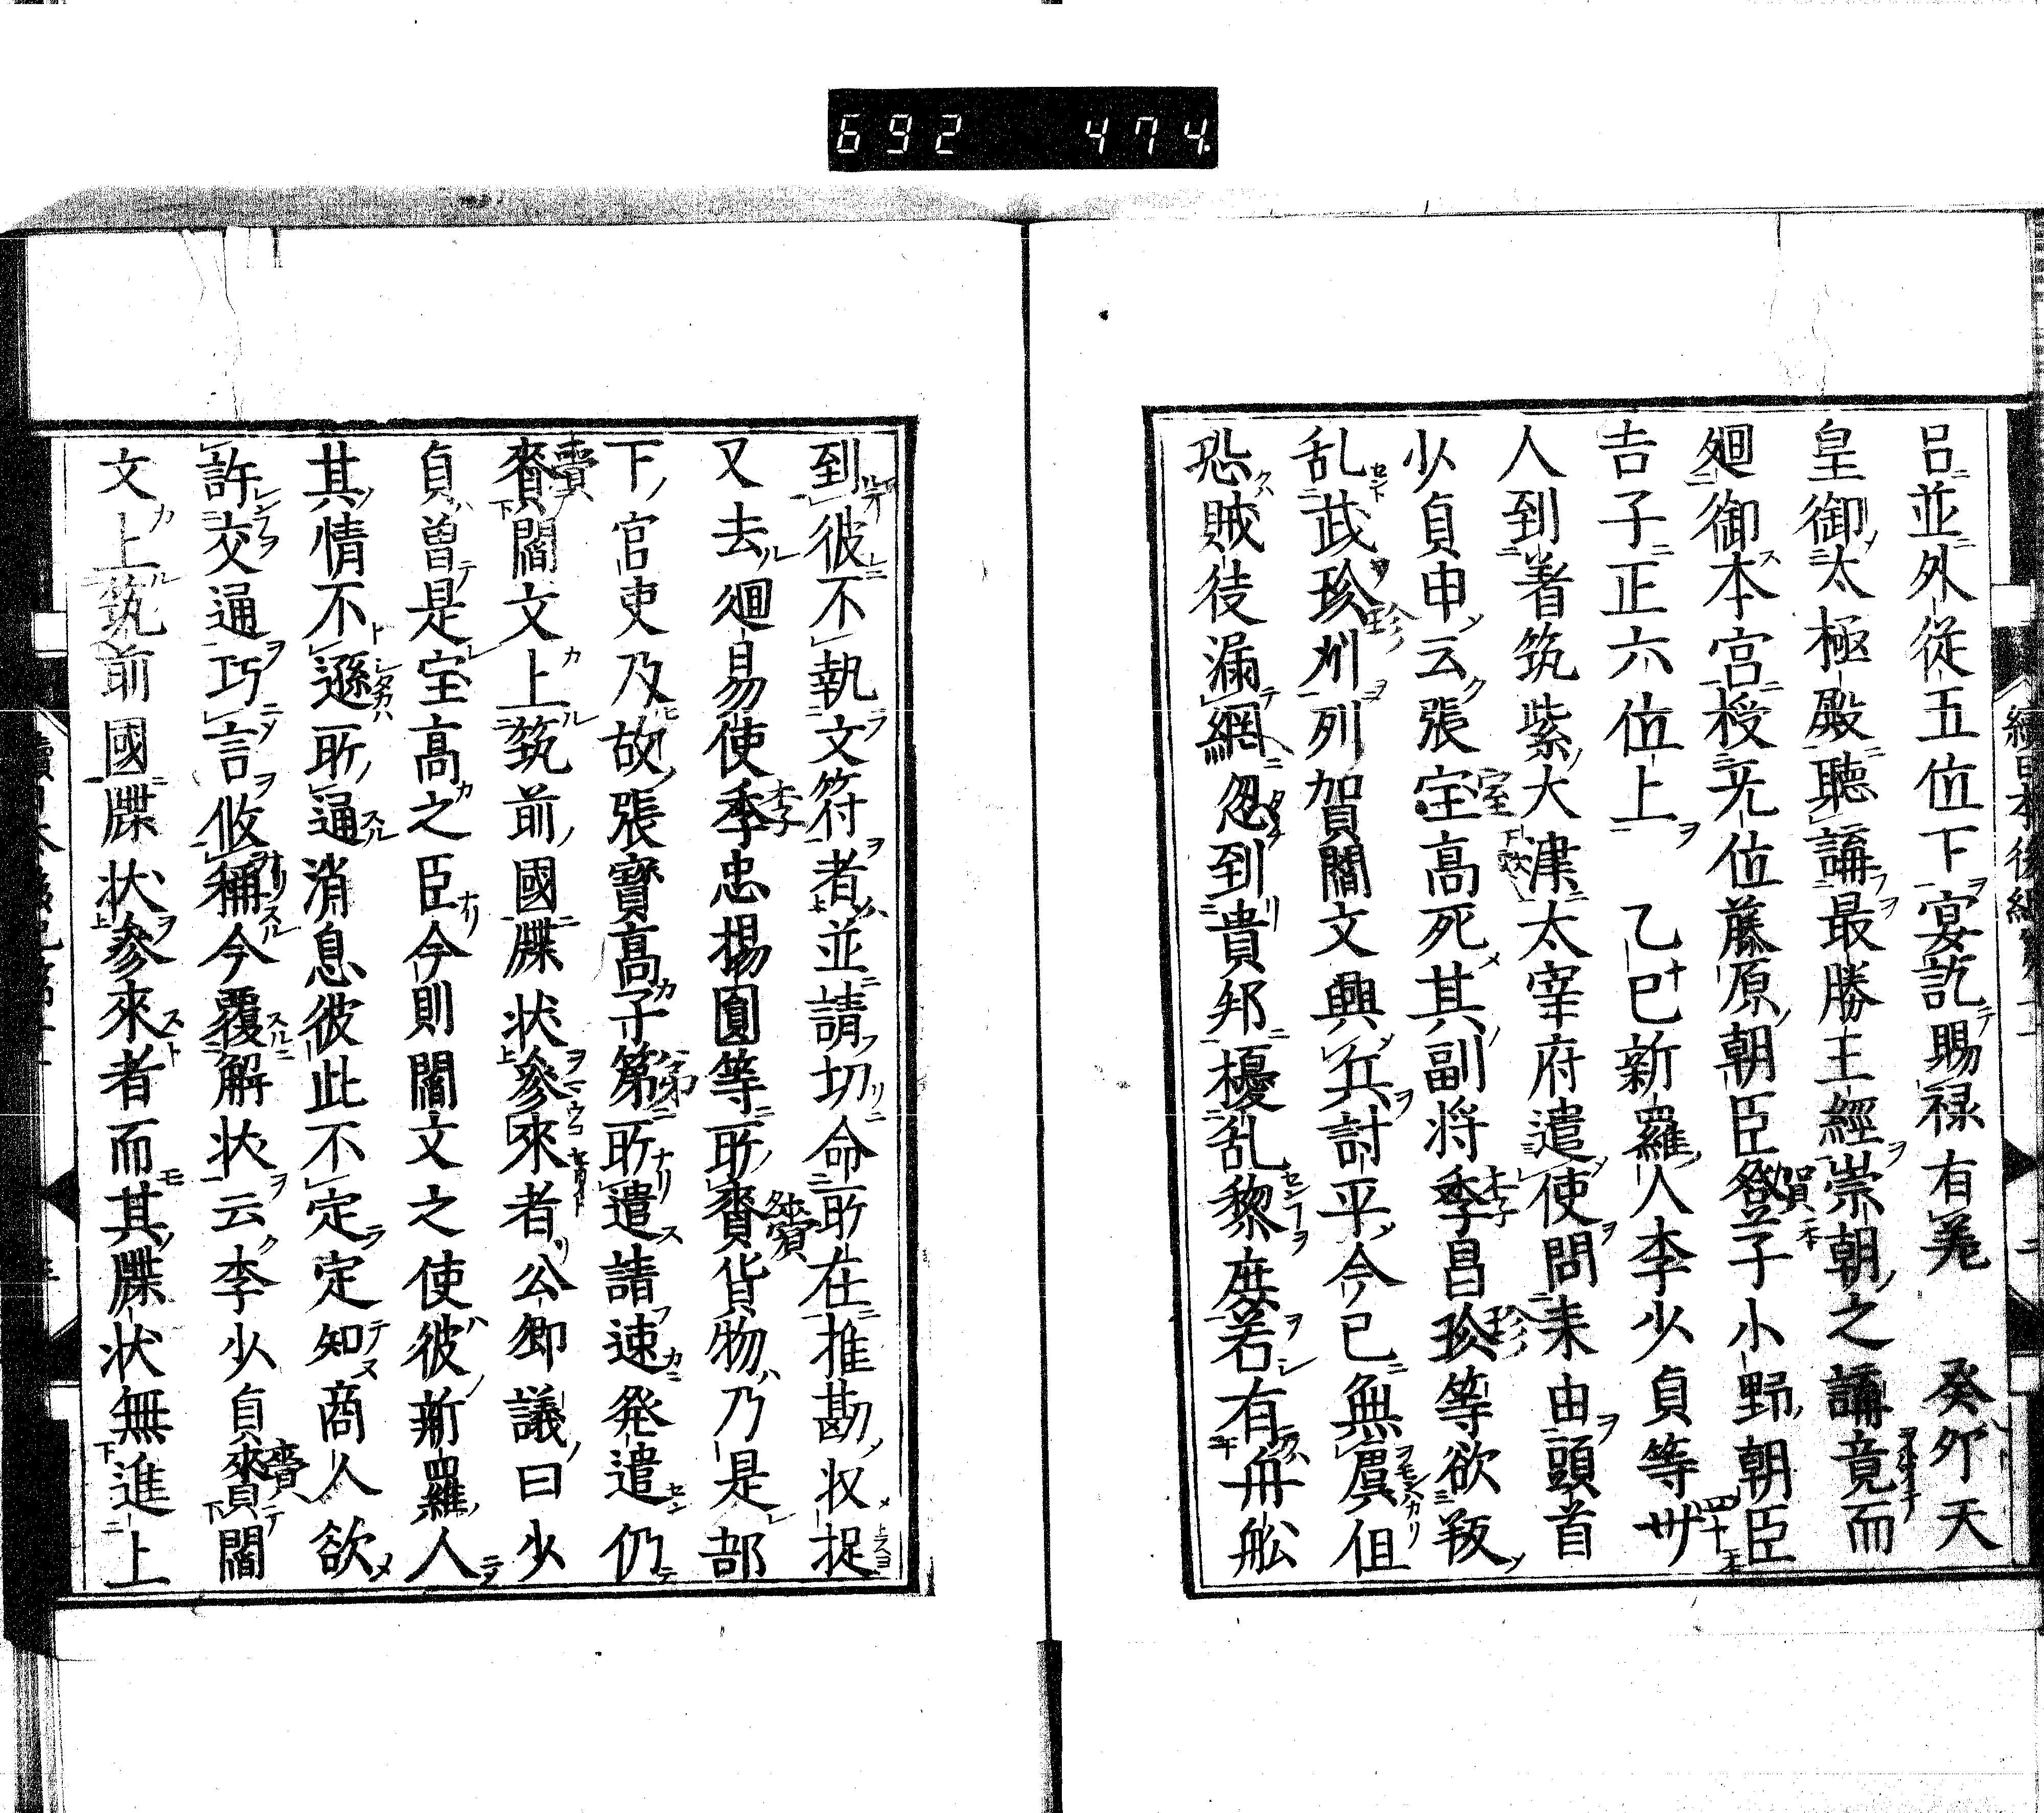 692 474.
呂並外從五位下宴訖賜祿有差 癸夘天
皇御太極殿聽誦最勝王經崇朝之誦竟而
廻御本宮授无位藤原朝臣登子小野朝臣
吉子正六位上 乙巳新羅人李少貞等卌
人到著筑紫大津太宰府遣使問来由頭首
少貞申云張宝高死其副将季昌珎等欲叛
乱武珎州列賀閻文興兵討平今已無虞但
恐賊徒漏網忽到貴邦擾乱黎庶若有舟舩
到彼不執文符者並請切命所在推勘収捉
又去廻易使季忠揚圓等所賷貨物乃是部
下官吏及故張寶高子第所遣請速発遣仍
賷閻文上筑前國牒状參來者公卿議曰少
貞曽是宝高之臣今則閻文之使彼新羅人
其情不遜所通消息彼此不定定知商人欲
許交通巧言攸稱今覆解状云李少貞賷閻
文上筑前國牒状參來者而其牒状無進上